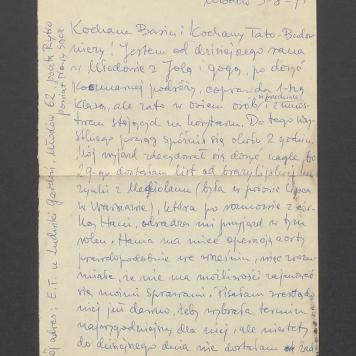 Kochana Basiu i Kochany Tato-Budow-
niczy! Jestem od dzisiejszego rana
w Młodowie z Jolą i Gogą, po dość
koszmarnej podróży, coprawda 1-szą
klasą, ale za to w osiem osób i z mnó-
stwem stojących na korytarzu. Do tego wszy-
stkiego pociąg spóźnił się około 2 godzin.
Mój wyjazd zdecydował się dosyć nagle, bo
29-go dostałam list od brazylijskiej
z Mediolanu (była w pierwsze lipca
w Warszawie), która po rozmowie z
Hani, odradza mi przyjazd w tym
roku; Hania ma mieć operację aorty
prawdopodobnie we wrześniu, więc zrozu-
miałe, że nie ma możliwości zajmować
się moimi sprawami. Pisałam zresztą do
niej już dawno, żeby wybrała termin
najwygodniejszy dla niej, ale niestety
do dzisiejszego dnia nie dostałam
adres: E.T. u Ludwiki, Młodów 62, poczta Rytro
powiat Nowy Sącz